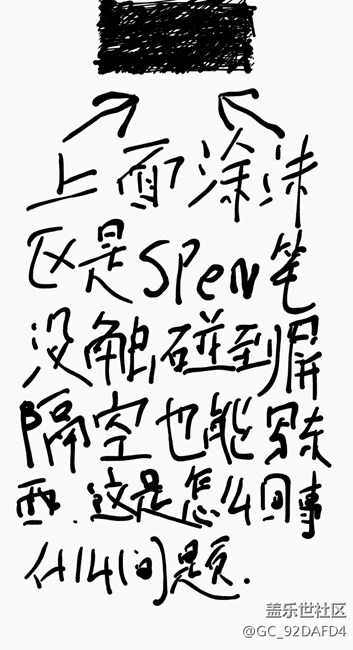 上面涂沫
区是SPen笔
没触碰到屏
隔空也能写东
西.这是怎么回事
什么问题.
盖乐世社区
@GC_92DAFD4